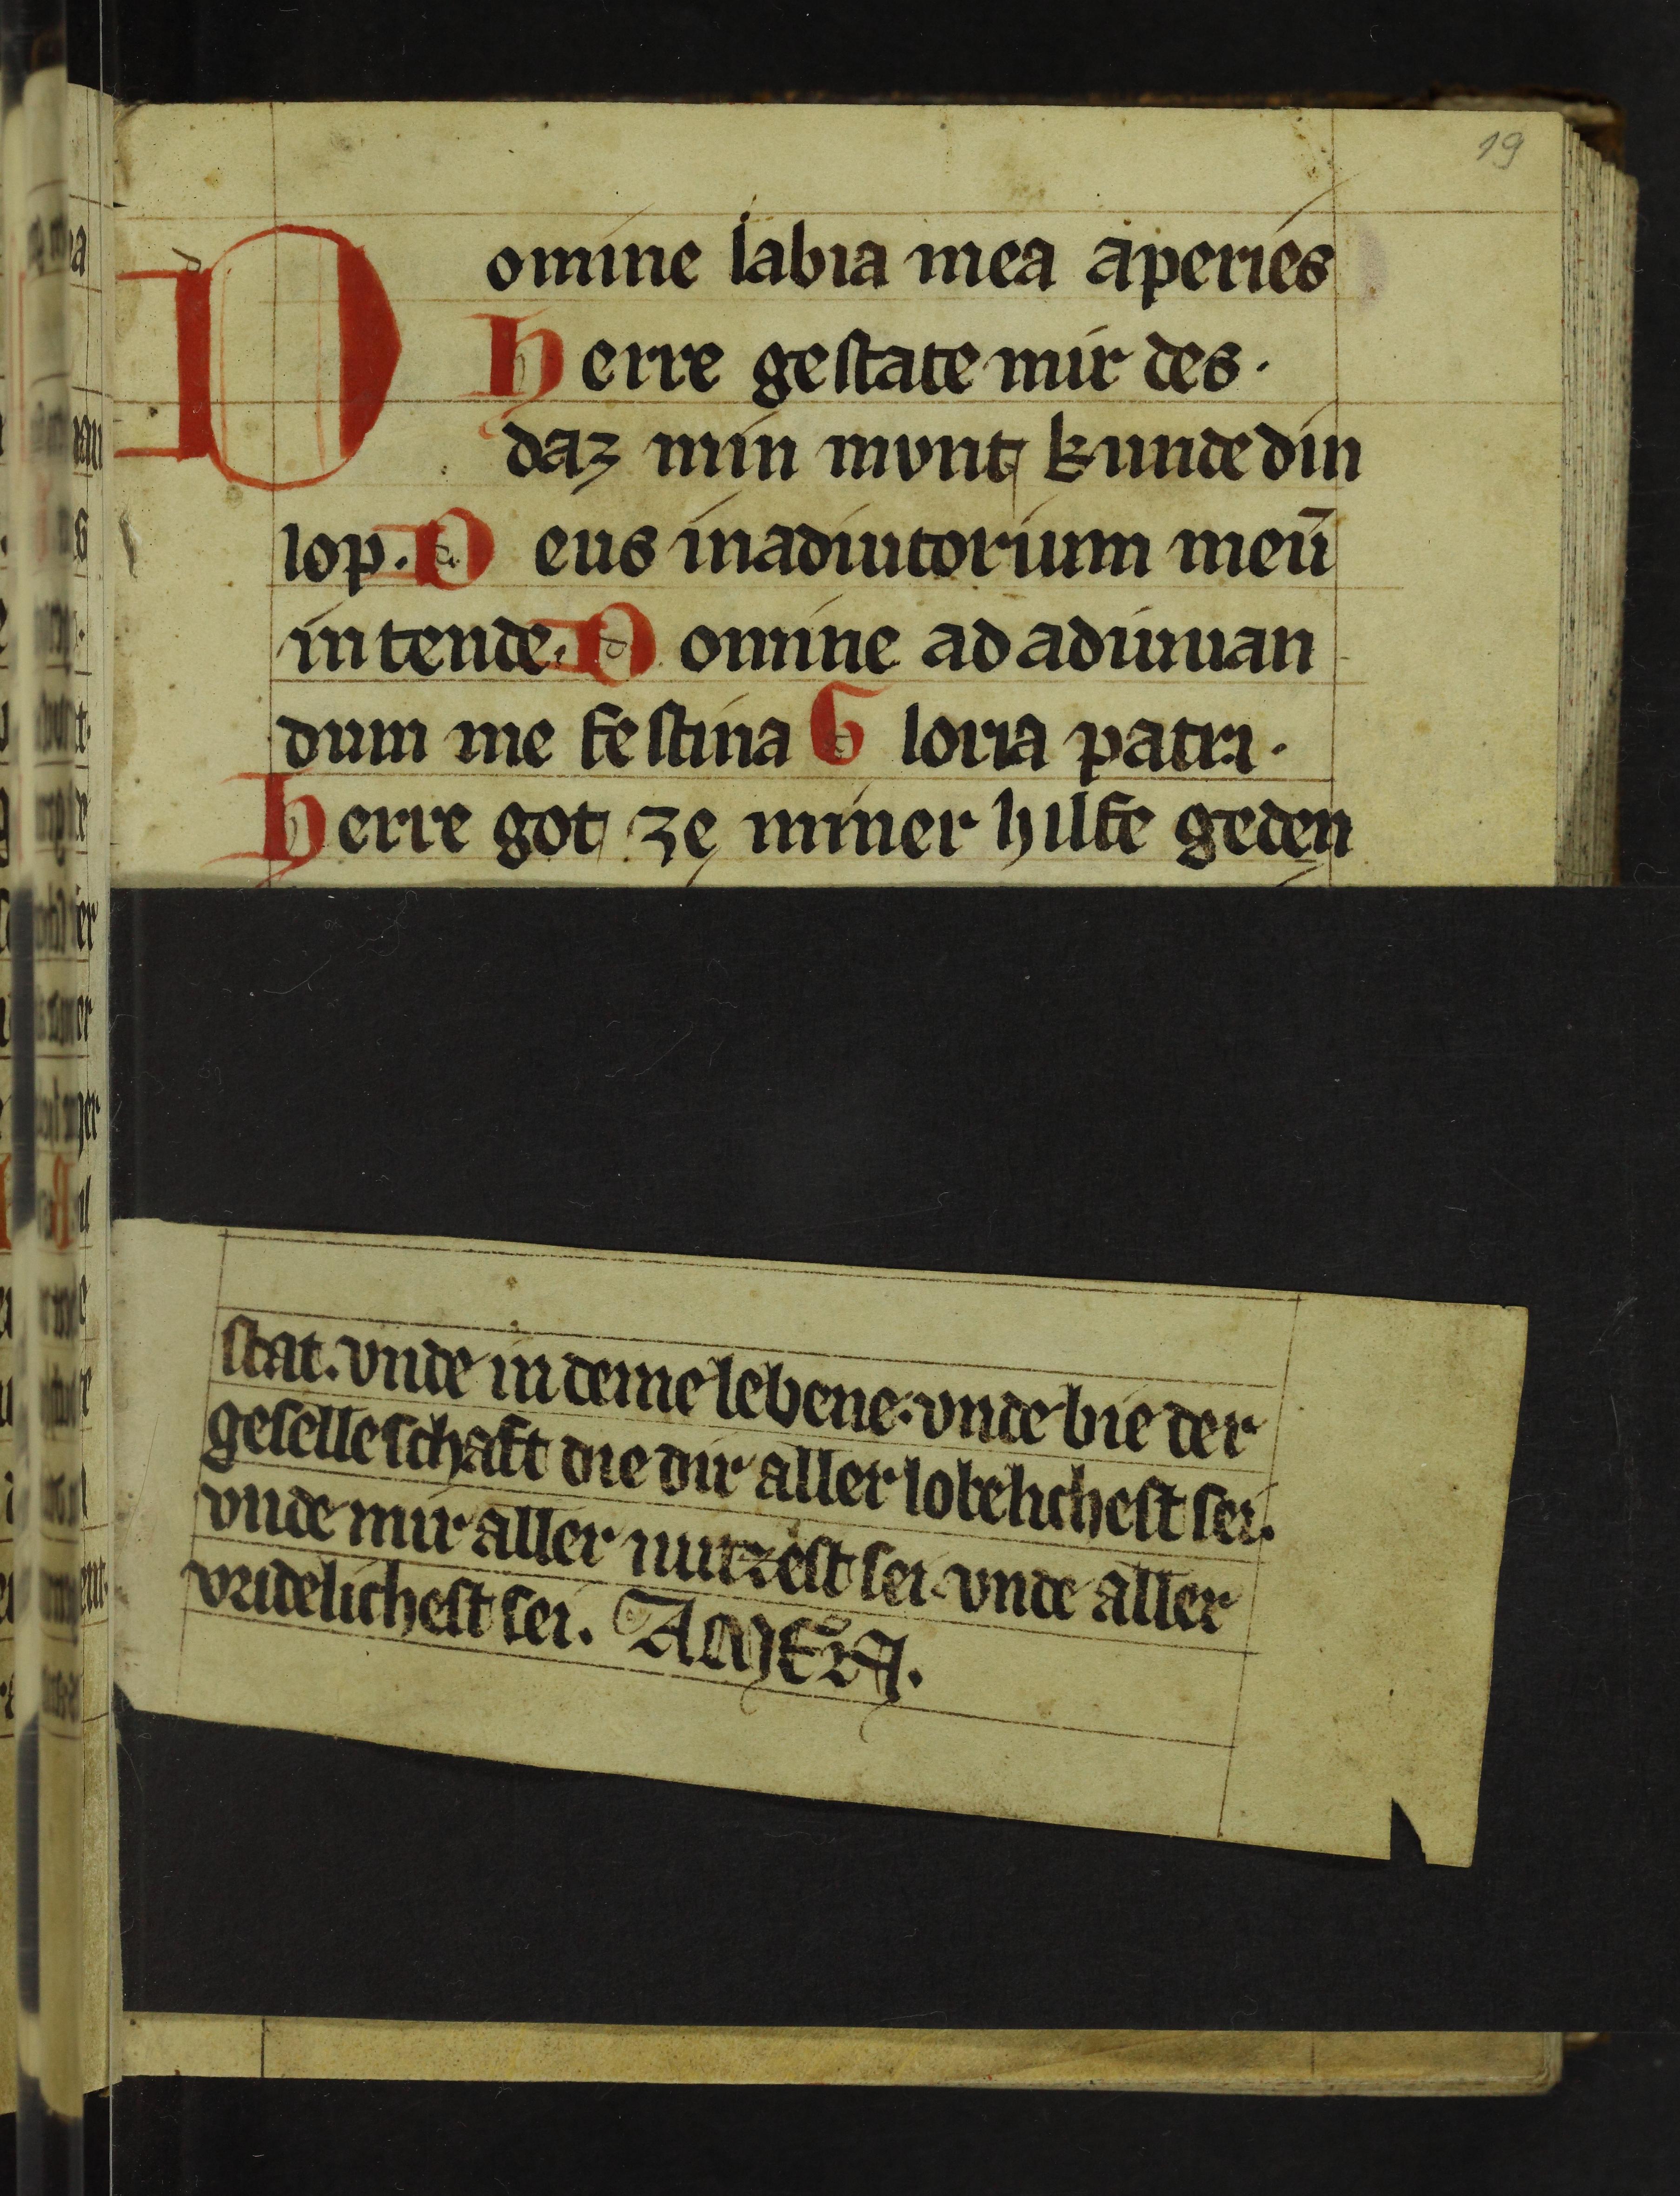 19
Domine labia mea aperies
Herre gestate mir des.
daz min mvnt kunde din
lop. Deus inadiutorium meū
intende. Domine ad adiuuan
dum me festina Gloria patri.
Herre got ze miner hilfe geden
stat. vnde in deme lebene. vnde bie der
geselleschaft die dir aller lobelichest sei.
vnde mir aller nutzest sei. vnde aller
vridelichest sei. AMEN.